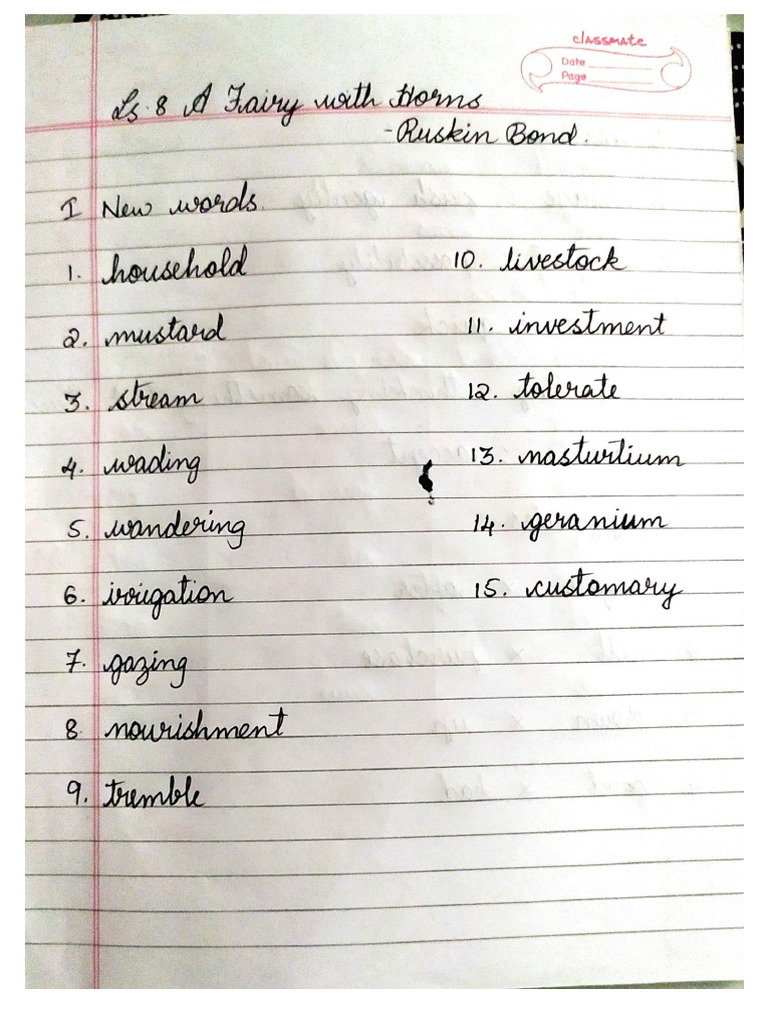 classmate
Date
Page
Ls. 8 A Fairy with Horns
- Ruskin Bond.
I New words.
1. household
2. mustard
3. stream
4. wading
5. wandering
6. irrigation
7. gazing
8. nourishment
9. tremble
10. livestock
11. investment
12. tolerate
13. nasturtium
14. geranium
15. customary